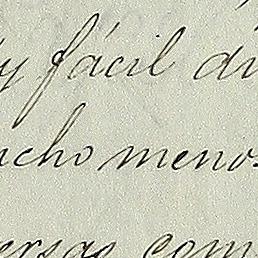 y fácil di
cho menos
ersas com